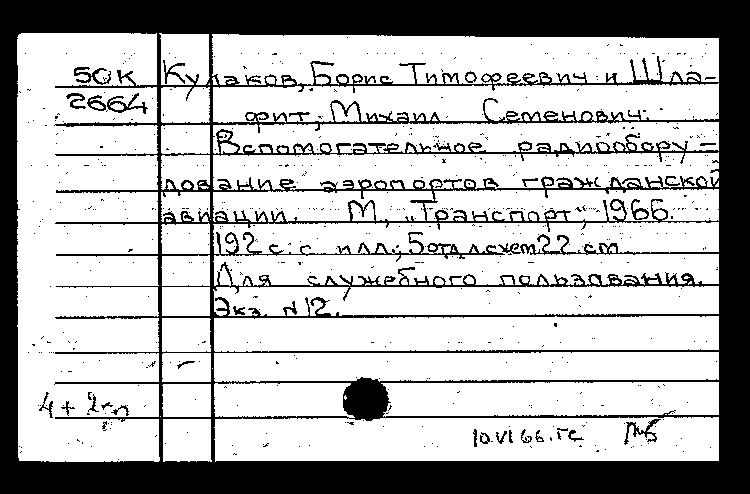 50К Кулаков, Борис Тимофеевич и Шла-
2664 фит, Михаил Семенович.
Вспомогательное радиообору-
дование аэропортов гражданской
авиации. М., „Транспорт", 1966.
192 с. с илл.; 5 отд.л.схем 22 cm
Для служебного пользавания.
Экз. №12.
4 +
10.VI 66. ГС